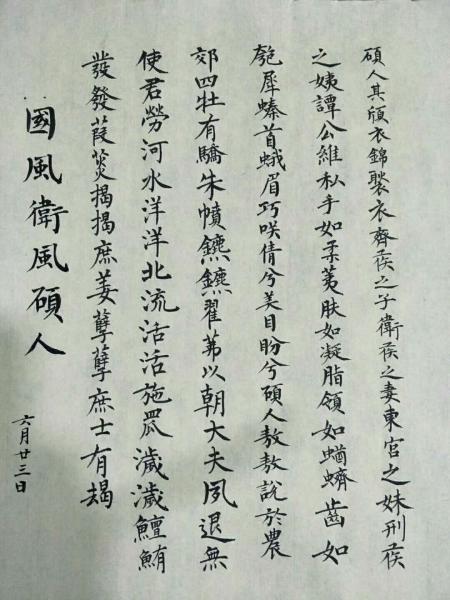 碩人其頎衣錦褧衣齊侯之子衛侯之妻東宮之妹刑侯
之姨譚公維私手如柔荑膚如凝脂領如蝤蠐齒如
瓠犀螓首蛾眉巧咲倩兮美目盼兮碩人敖敖說於農
郊四牡有驕朱幩鑣鑣翟茀以朝大夫夙退無
使君勞河水洋洋北流活活施罛濊濊鱣鮪
發發葭菼揭揭庶姜孽孽庶士有朅
國風衛風碩人
六月廿三日